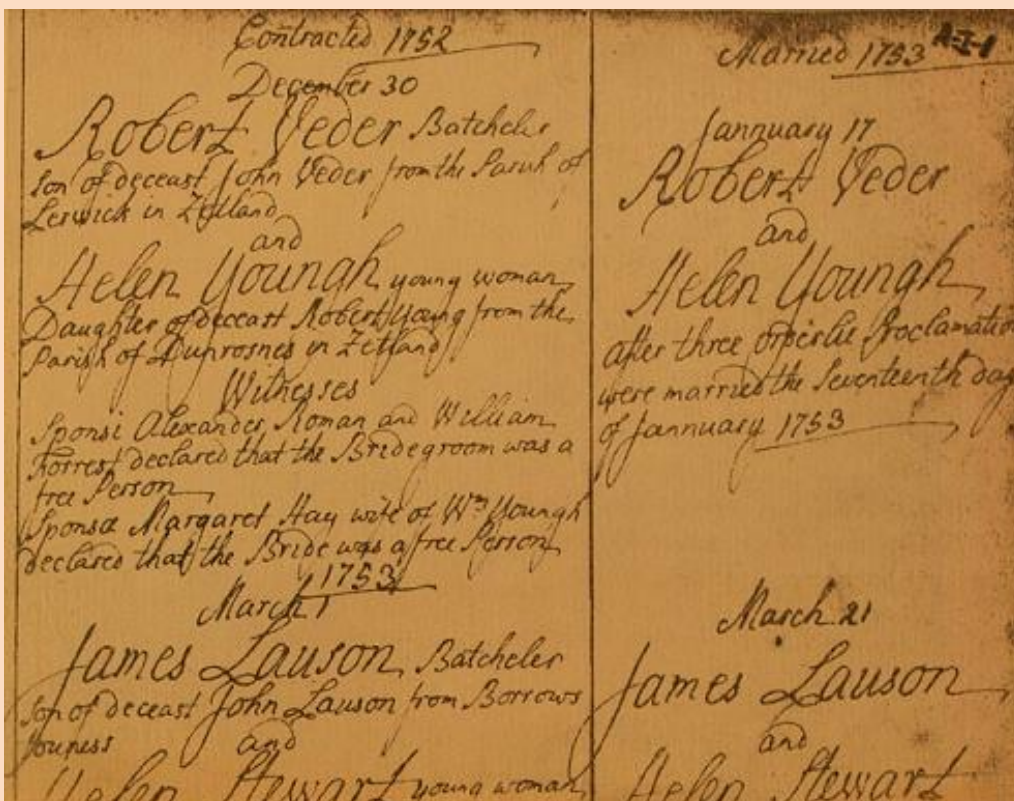 Contracted 1752
December 30
Robert Veder Batcheler
Son of deceast John Veder from the Parish of
Lerwick in Zetland
and
Helen Youngh young woman
Daughter of deceast Robert Young from the
Parish of Dunrosnes in Zetland
Witnesses
Sponsi Alexander Roman and William
Forrest declared that the Bridegroom was a
free Person
Sponsæ Margaret Hay wife of Wm Youngh
declared that the Bride was a free Person
1753
March 1
James Lauson Batcheler
Son of deceast John Lauson from Borrows
touness
and
Helen Stewart young woman
A-I-1
Married 1753
Jannuary 17
Robert Veder
and
Helen Youngh
after three orderlie Proclamation
were married the Seventeenth day
of Jannuary 1753
March 21
James Lauson
and
Helen Stewart